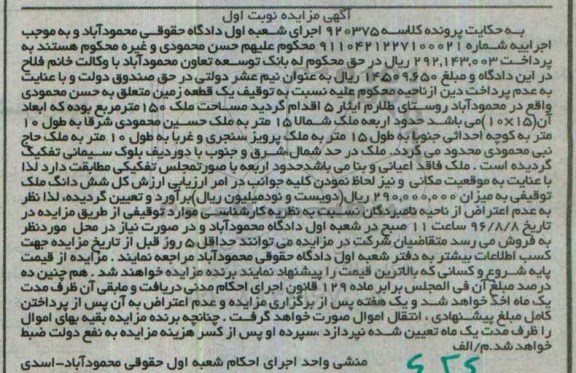 آگهی مزایده نوبت اول
به حکایت پرونده کلاسه ۹۲۰۳۷۵ اجرای شعبه اول دادگاه حقوقی محمودآباد و به موجب
اجراییه شماره ۹۱۱۰۴۲۱۲۲۷۱۰۰۰۲۱ محکوم علیهم حسن محمودی و غیره محکوم هستند به
پرداخت ۲۹۲,۱۴۳,۰۰۳ ریال در حق محکوم له بانک توسعه تعاون محمودآباد با وکالت خانم فلاح
در این دادگاه و مبلغ ۱۴۵۰۹,۶۵۰ ریال به عنوان نیم عشر دولتی در حق صندوق دولت و با عنایت
به عدم پرداخت دین از ناحیه محکوم علیه نسبت به توقیف یک قطعه زمین متعلق به حسن محمودی
واقع در محمودآباد روستای طالارم ایثار ۵ اقدام گردید مساحت ملک ۱۵۰ مترمربع بوده که ابعاد
آن (۱۵×۱۰) می باشد حدود اربعه ملک شمالا ۱۵ متر به ملک حسین محمودی شرقا به طول ۱۰
متر به کوچه احداثی جنوبا به طول ۱۵ متر به ملک پرویز سنجری و غربا به طول ۱۰ متر به ملک حاج
نبی محمودی محدود می گردد. ملک در حد شمال، شرق و جنوب با دوردیف بلوک سیمانی تفکیک
گردیده است. ملک فاقد اعیانی و بنا می باشد حدود اربعه با صورتمجلس تفکیکی مطابقت دارد لذا
با عنایت به موقعیت مکانی و نیز لحاظ نمودن کلیه جوانب در امر ارزیابی ارزش کل شش دانگ ملک
توقیفی به میزان ۲۹۰,۰۰۰,۰۰۰ ریال (دویست و نودمیلیون ریال) برآورد و تعیین گردیده، لذا نظر
به عدم اعتراض از ناحیه نامبردگان نسبت به نظریه کارشناسی موارد توقیفی از طریق مزایده در
تاریخ ۹۶/۸/۸ ساعت ۱۱ صبح در شعبه اول دادگاه محمودآباد و در صورت نیاز در محل موردنظر
به فروش می رسد متقاضیان شرکت در مزایده می توانند حداقل ۵ روز قبل از تاریخ مزایده جهت
کسب اطلاعات بیشتر به دفتر شعبه اول دادگاه حقوقی محمودآباد مراجعه نمایند. مزایده از قیمت
پایه شروع و کسانی که بالاترین قیمت را پیشنهاد نمایند برنده مزایده خواهند شد. هم چنین ده
درصد مبلغ آن فی المجلس برابر ماده ۱۲۹ قانون اجرای احکام مدنی دریافت و مابقی آن ظرف مدت
یک ماه اخذ خواهد شد و یک هفته پس از برگزاری مزایده و عدم اعتراض به آن پس از پرداختن
کامل مبلغ پیشنهادی، انتقال اموال صورت خواهد گرفت. چنانچه برنده مزایده بقیه بهای اموال
را ظرف مدت یک ماه تعیین شده نپردازد، سپرده او پس از کسر هزینه مزایده به نفع دولت ضبط
خواهد شد. م/الف
منشی واحد اجرای احکام شعبه اول حقوقی محمودآباد-اسدی